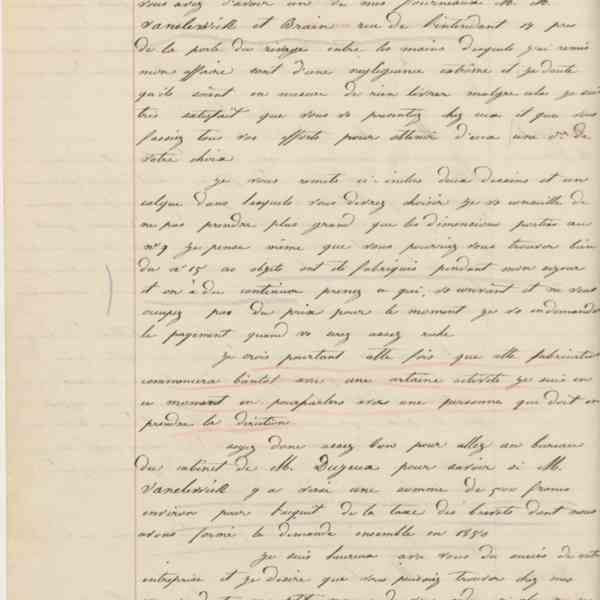 vous avez d'avoir un de mes fourneaux M. M.
Vanderrick et Brain rue de l'intendant 19 près
de la porte du rivage entre les mains desquels j'ai remis
mon affaire sont d'une négligeance extrême et je doute
qu'ils soient en mesure de rien livrer malgré cela je suis
très satisfait que vous vs presentez chez eux et que vous
fassiez tous vos efforts pour obtenir d'eux une de
votre choix
Je vous remets ci-inclus deux dessins et un
calque dans lesquels vous devrez choisir je vs conseille de
ne pas prendre plus grand que les dimensions portées au
n° 9 je pense même que vous pourriez vous trouver bien
du n° 15 ces objets ont été fabriqués pendant mon sejour
et on a du continuer prenez ce qui vs convient et ne vous
occupez pas du prix pour le moment je vs en demanderai
le payement quand vs serez assez riche
Je crois pourtant cette fois que cette fabrication
commencera bientot avec une certaine activité je suis en
ce moment en pourparlers avec une personne qui doit en
prendre la direction
soyez donc assez bon pour allez au bureau
du cabinet de M. pour savoir si M.
Vanderrick y a versé une somme de 500 francs
environ pour l'acquit de la taxe des brevets dont nous
avons formé la demande ensemble en 1850
Je suis heureux avec vous du succès de votre
entreprise et je désire que vous puissiez trouver chez mes